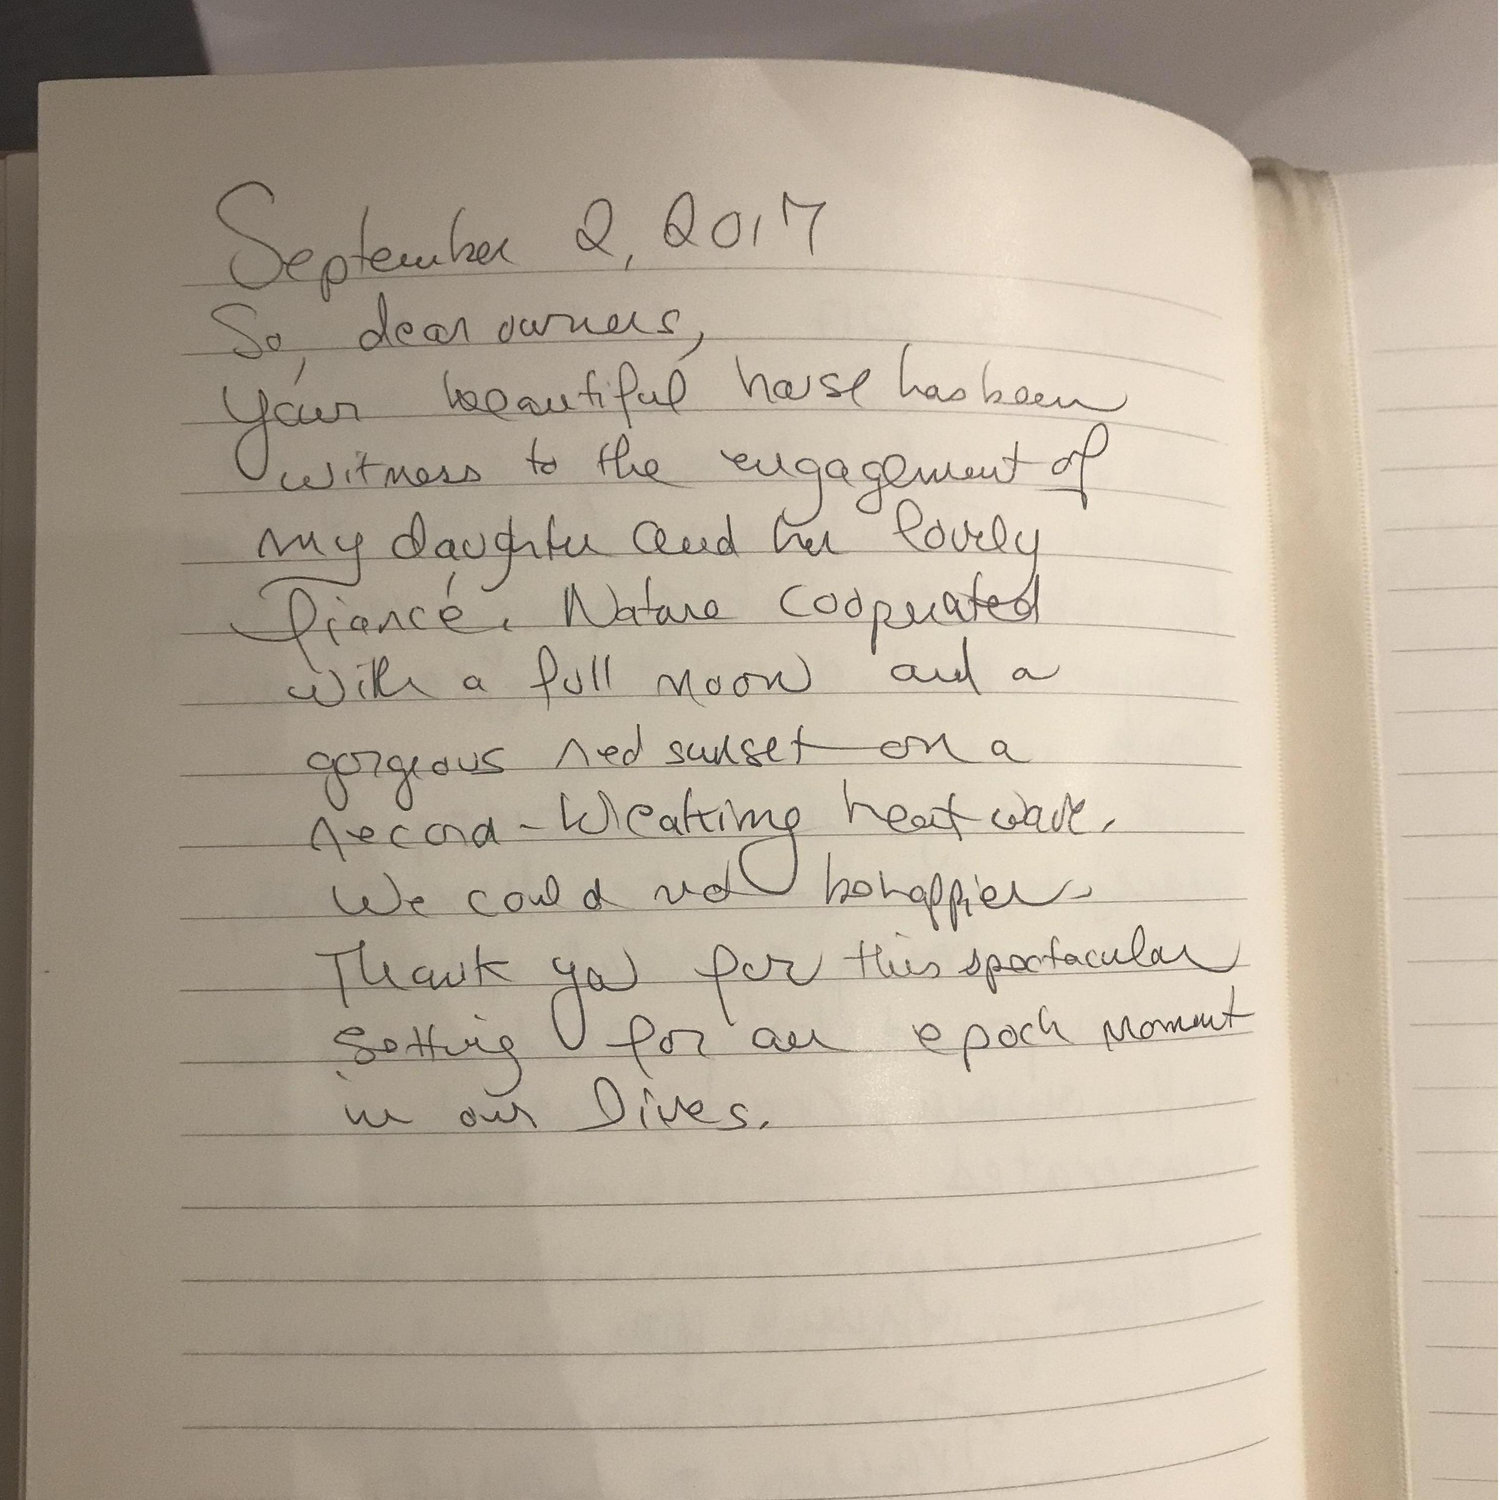 September 2, 2017
So, dear owners,
Your beautiful house has been
witness to the engagement of
my daughter and her lovely
fiancé. Nature cooperated
with a full moon and a
gorgeous red sunset on a
record-breaking heat wave.
We could not be happier.
Thank you for this spectacular
setting for an epoch moment
in our lives.